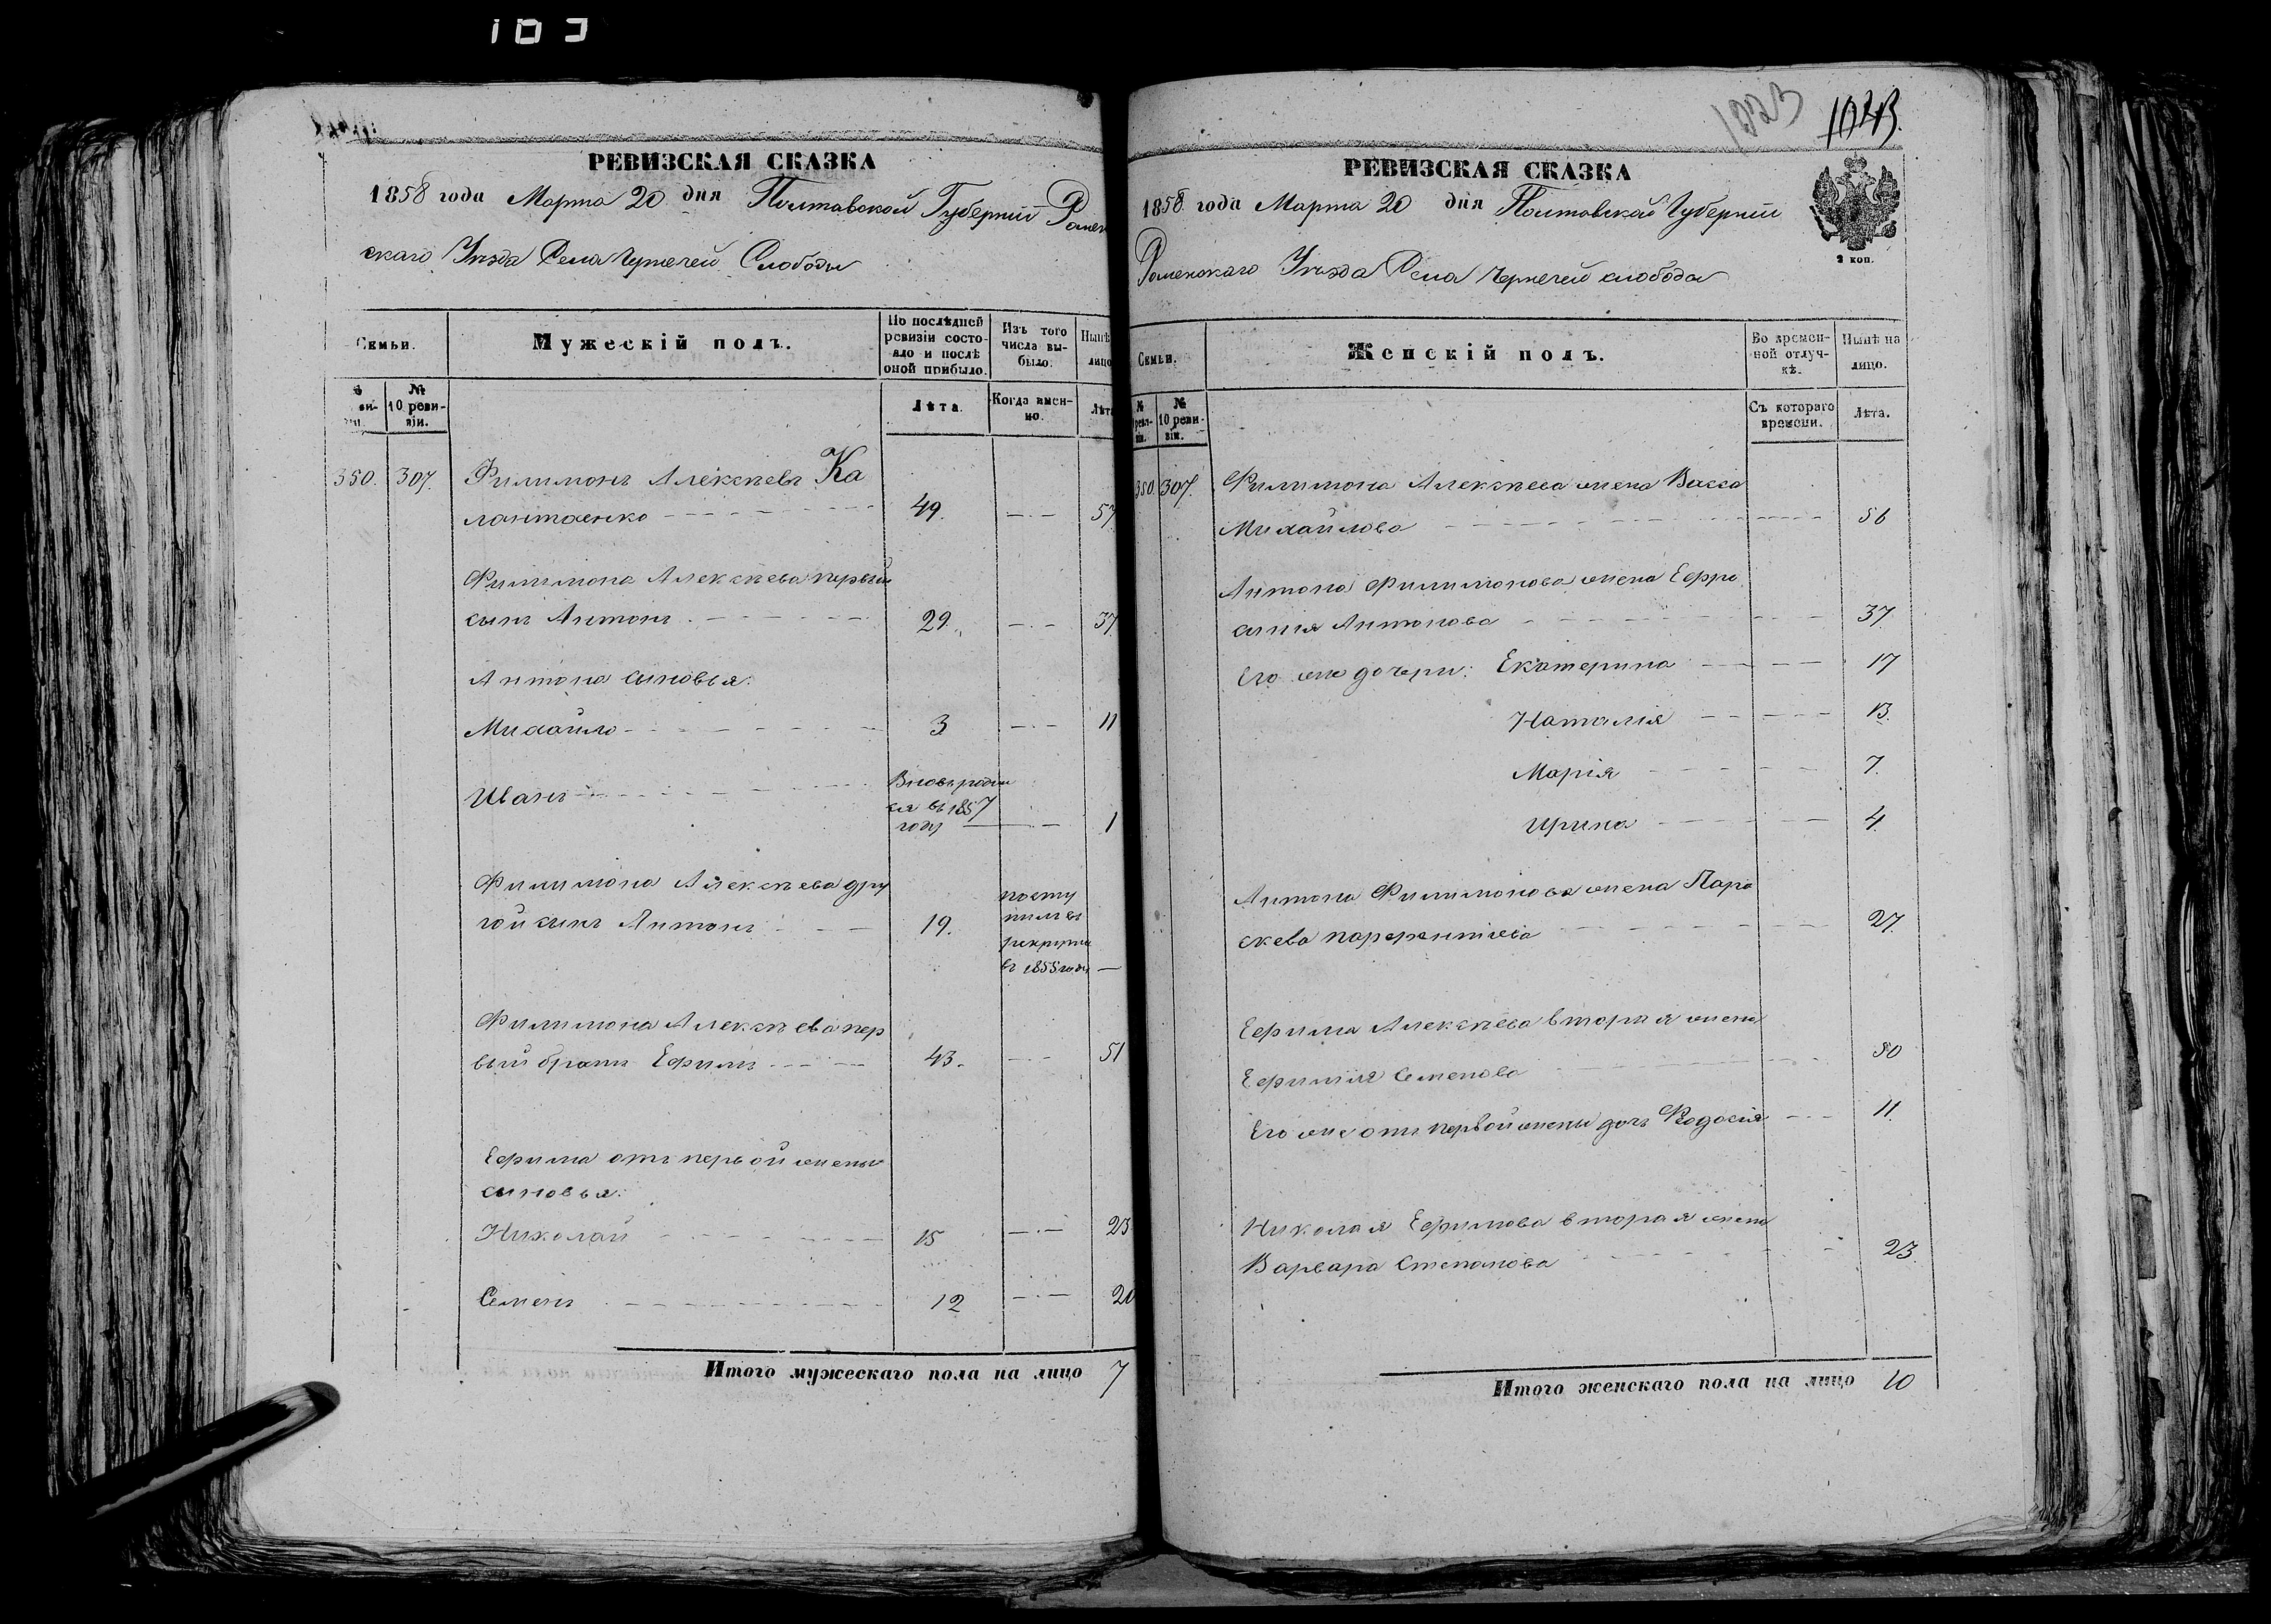 103
РЕВИЗСКАЯ СКАЗКА
1858 года Марта 20 дня Полтавской Губерніи Ромен
скаго Уѣзда Села Чернечей Слободы
Семьи.
Мужескій полъ.
По послѣдней ревизіи состояло и послѣ оной прибыло.
Изъ того числа выбыло.
Нынѣ лицо
№ 10 ревизіи.
Лѣта.
Когда именно.
Лѣта
350. 307. Филимонъ Алексѣевъ Ка
лантаенко 49. 57
Филимона Алексѣева первый
сынъ Антонъ 29. 37
Антона сыновья:
Михайло 3 11
Иванъ Вновь родил
ся въ 1857
году 1
Филимона Алексѣева дру
гой сынъ Антонъ 19. посту
пилъ въ
рекруты
въ 1855 году
Филимона Алексѣева пер
вый братъ Ефимъ 43. 51
Ефима отъ первой жены
сыновья:
Николай 15 23
Семенъ 12 20
Итого мужескаго пола на лицо 7
1223 1043.
РЕВИЗСКАЯ СКАЗКА
1858 года Марта 20 дня Полтавской Губерніи
Роменскаго Уѣзда Села Чернечей слободы
2 коп.
Семьи.
Женскій полъ.
Во временной отлучкѣ.
Нынѣ на лицо.
№ 10 ревизіи.
Съ котораго времени.
Лѣта.
350 307. Филимона Алексѣева жена Васса
Михайлова 56
Антона Филимонова жена Ефро
синія Антонова 37
Его же дочери: Екатерина 17
Наталія 13.
Марія 7.
Ирина 4.
Антона Филимонова жена Пара
скева Парфентіева 27.
Ефима Алексѣева вторая жена
Ефимія Семенова 50
Его же отъ первой жены дочь Феодосія 11.
Николая Ефимова вторая жена
Варвара Степанова 23.
Итого женскаго пола на лицо 10